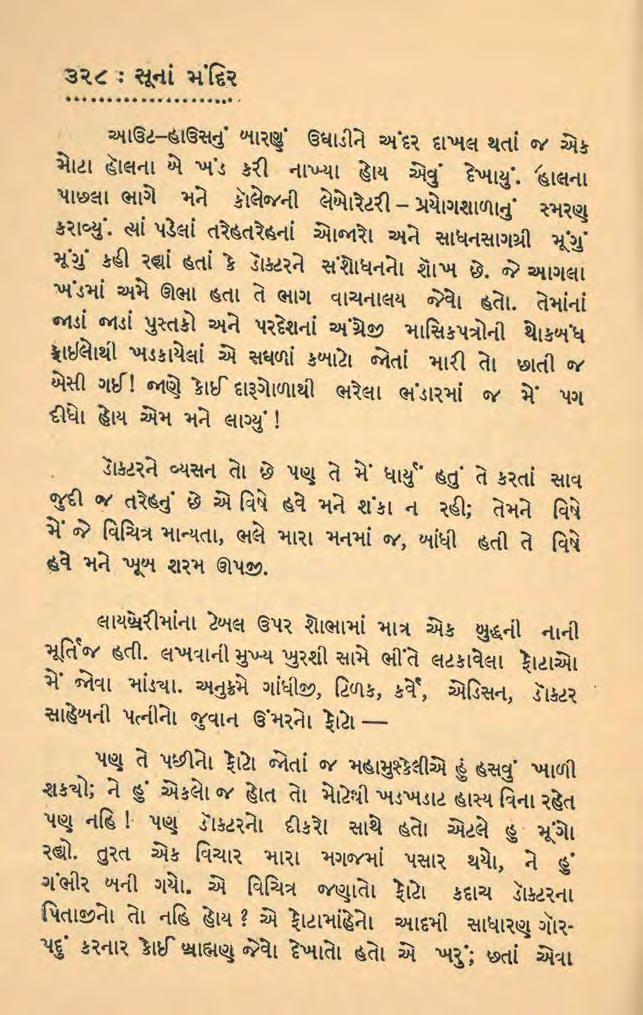 ૩૨૮ : સૂનાં મંદિર
આઉટ–હાઉસનું બારણું ઉઘાડીને અંદર દાખલ થતાં જ એક
મોટા હૉલના બે ખંડ કરી નાખ્યા હોય એવું દેખાયું. હાલના
પાછલા ભાગે મને કૉલેજની લેબોરેટરી – પ્રયોગશાળાનું સ્મરણ
કરાવ્યું. ત્યાં પડેલાં તરેહતરેહનાં ઓજારો અને સાધનસાગગ્રી મૂંગું
મૂંગું કહી રહ્યાં હતાં કે ડૉક્ટરને સંશોધનનો શૉખ છે. જે આગલા
ખંડમાં અમે ઊભા હતા તે ભાગ વાચનાલય જેવો હતો. તેમાંનાં
જાડાં જાડાં પુસ્તકો અને પરદેશનાં અંગ્રેજી માસિકપત્રોની થોકબંધ
ફાઈલોથી ખડકાયેલાં એ સઘળાં કબાટો જોતાં મારી તો છાતી જ
બેસી ગઈ! જાણે કોઈ દારૂગોળાથી ભરેલા ભંડારમાં જ મેં પગ
દીધો હોય એમ મને લાગ્યું!
ડૉક્ટરને વ્યસન તો છે પણ તે મેં ધાર્યું હતું તે કરતાં સાવ
જુદી જ તરેહનું છે એ વિષે હવે મને શંકા ન રહી; તેમને વિષે
મેં જે વિચિત્ર માન્યતા, ભલે મારા મનમાં જ, બાંધી હતી તે વિષે
હવે મને ખૂબ શરમ ઊપજી.
લાયબ્રેરીમાંના ટેબલ ઉપર શોભામાં માત્ર એક બુદ્ધની નાની
મૂર્તિજ હતી. લખવાની મુખ્ય ખુરશી સામે ભીંતે લટકાવેલા ફોટાઓ
મેં જોવા માંડ્યા. અનુક્રમે ગાંધીજી, ટિળક, કર્વે, એડિસન, ડૉક્ટર
સાહેબની પત્નીનો જુવાન ઉંમરનો ફોટો —
પણ તે પછીનો ફોટો જોતાં જ મહામુશ્કેલીએ હું હસવું ખાળી
શક્યો; ને હું એકલો જ હોત તો મોટેથી ખડખડાટ હાસ્ય વિના રહેત
પણ નહિ! પણ ડૉક્ટરનો દીકરો સાથે હતો એટલે હુ મૂંગો
રહ્યો. તુરત એક વિચાર મારા મગજમાં પસાર થયો, ને હું
ગંભીર બની ગયો. એ વિચિત્ર જણાતો ફોટો કદાચ ડૉક્ટરના
પિતાજીનો તો નહિ હોય? એ ફોટામાંહેનો આદમી સાધારણ ગૉર-
પદું કરનાર કોઈ બ્રાહ્મણ જેવો દેખાતો હતો એ ખરું; છતાં એવા